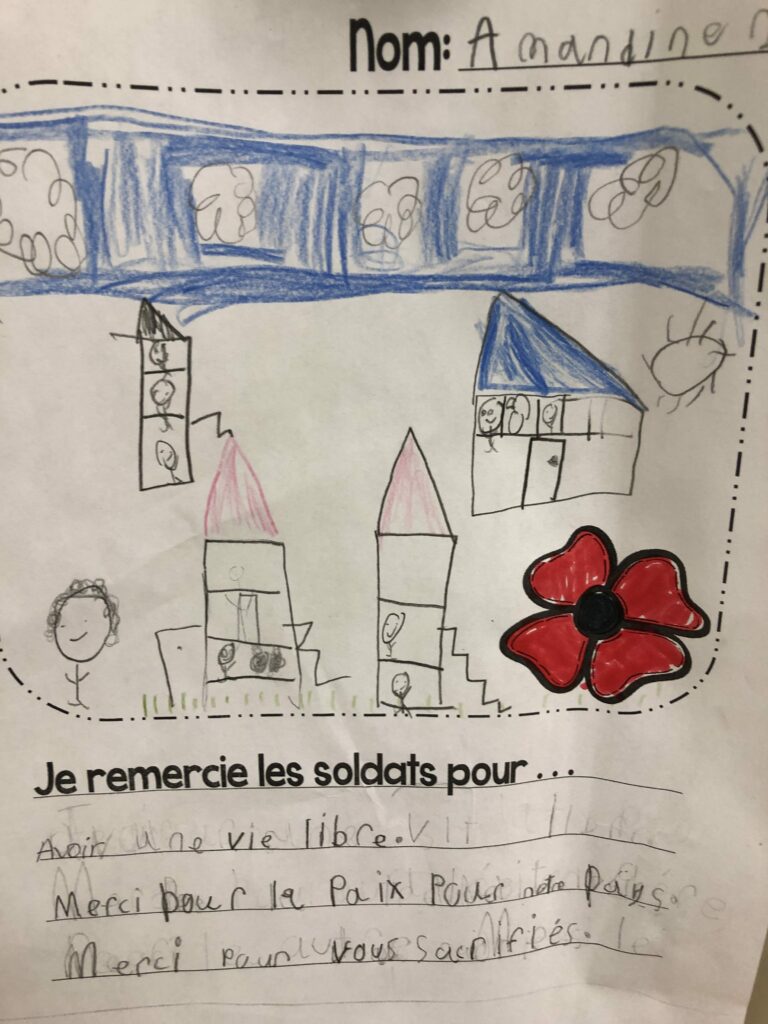 Nom: Amandine
Je remercie les soldats pour ...
Avoir une vie libre.
Merci pour la Paix pour notre pays.
Merci pour vous sacrifiés.